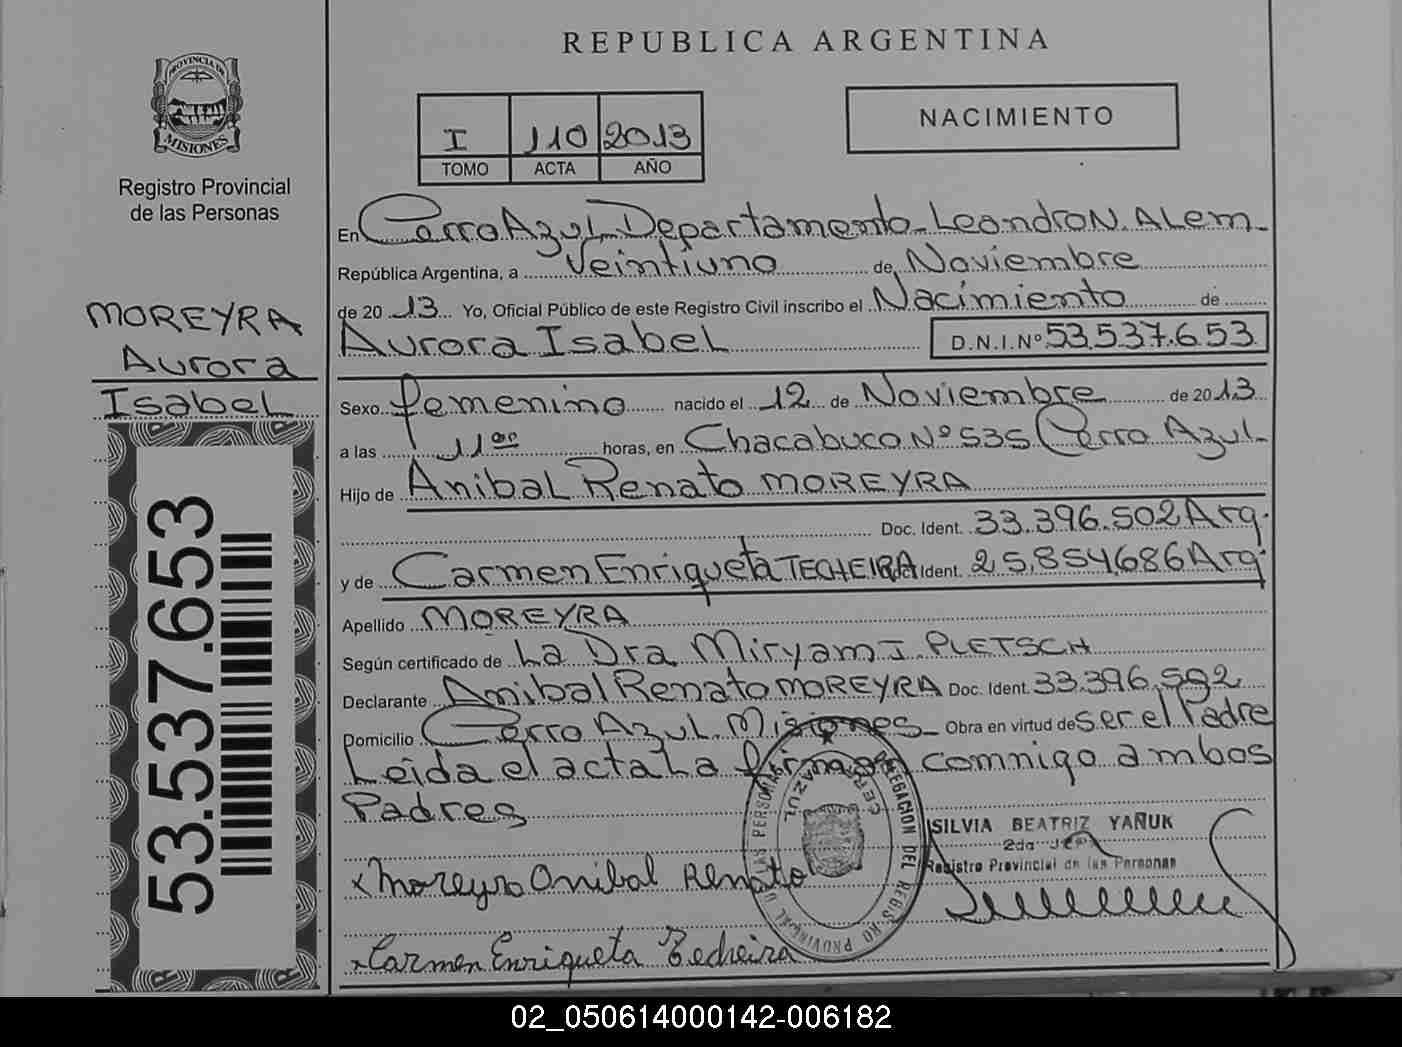 REPUBLICA ARGENTINA
PROVINCIA DE
MISIONES
Registro Provincial
de las Personas
I 110 2013
TOMO ACTA AÑO
NACIMIENTO
MOREYRA
Aurora
Isabel
53.537.653
En Cerro Azul Departamento Leandro N. Alem
República Argentina, a Veintiuno de Noviembre
de 20 13 Yo, Oficial Público de este Registro Civil inscribo el Nacimiento de
Aurora Isabel D.N.I.Nº 53.537.653
Sexo femenino nacido el 12 de Noviembre de 2013
a las 11 horas, en Chacabuco Nº 535 Cerro Azul
Hijo de Anibal Renato MOREYRA
Doc. Ident. 33.396.502 Arg.
y de Carmen Enriqueta TECHEIRA Ident. 25.854.686 Arg.
Apellido MOREYRA
Según certificado de La Dra Miryam I. PLETSCH
Declarante Anibal Renato MOREYRA Doc. Ident. 33.396.502
Domicilio Cerro Azul Misiones Obra en virtud de ser el Padre
Leida el acta La firman comnigo ambos
Padres
SILVIA BEATRIZ YAÑUK
2da
Registro Provincial de las Personas
DELEGACION DEL REGISTRO PROVINCIAL DE LAS PERSONAS
CERRO AZUL
x Moreyra Anibal Renato
x Carmen Enriqueta Techeira
02_050614000142-006182